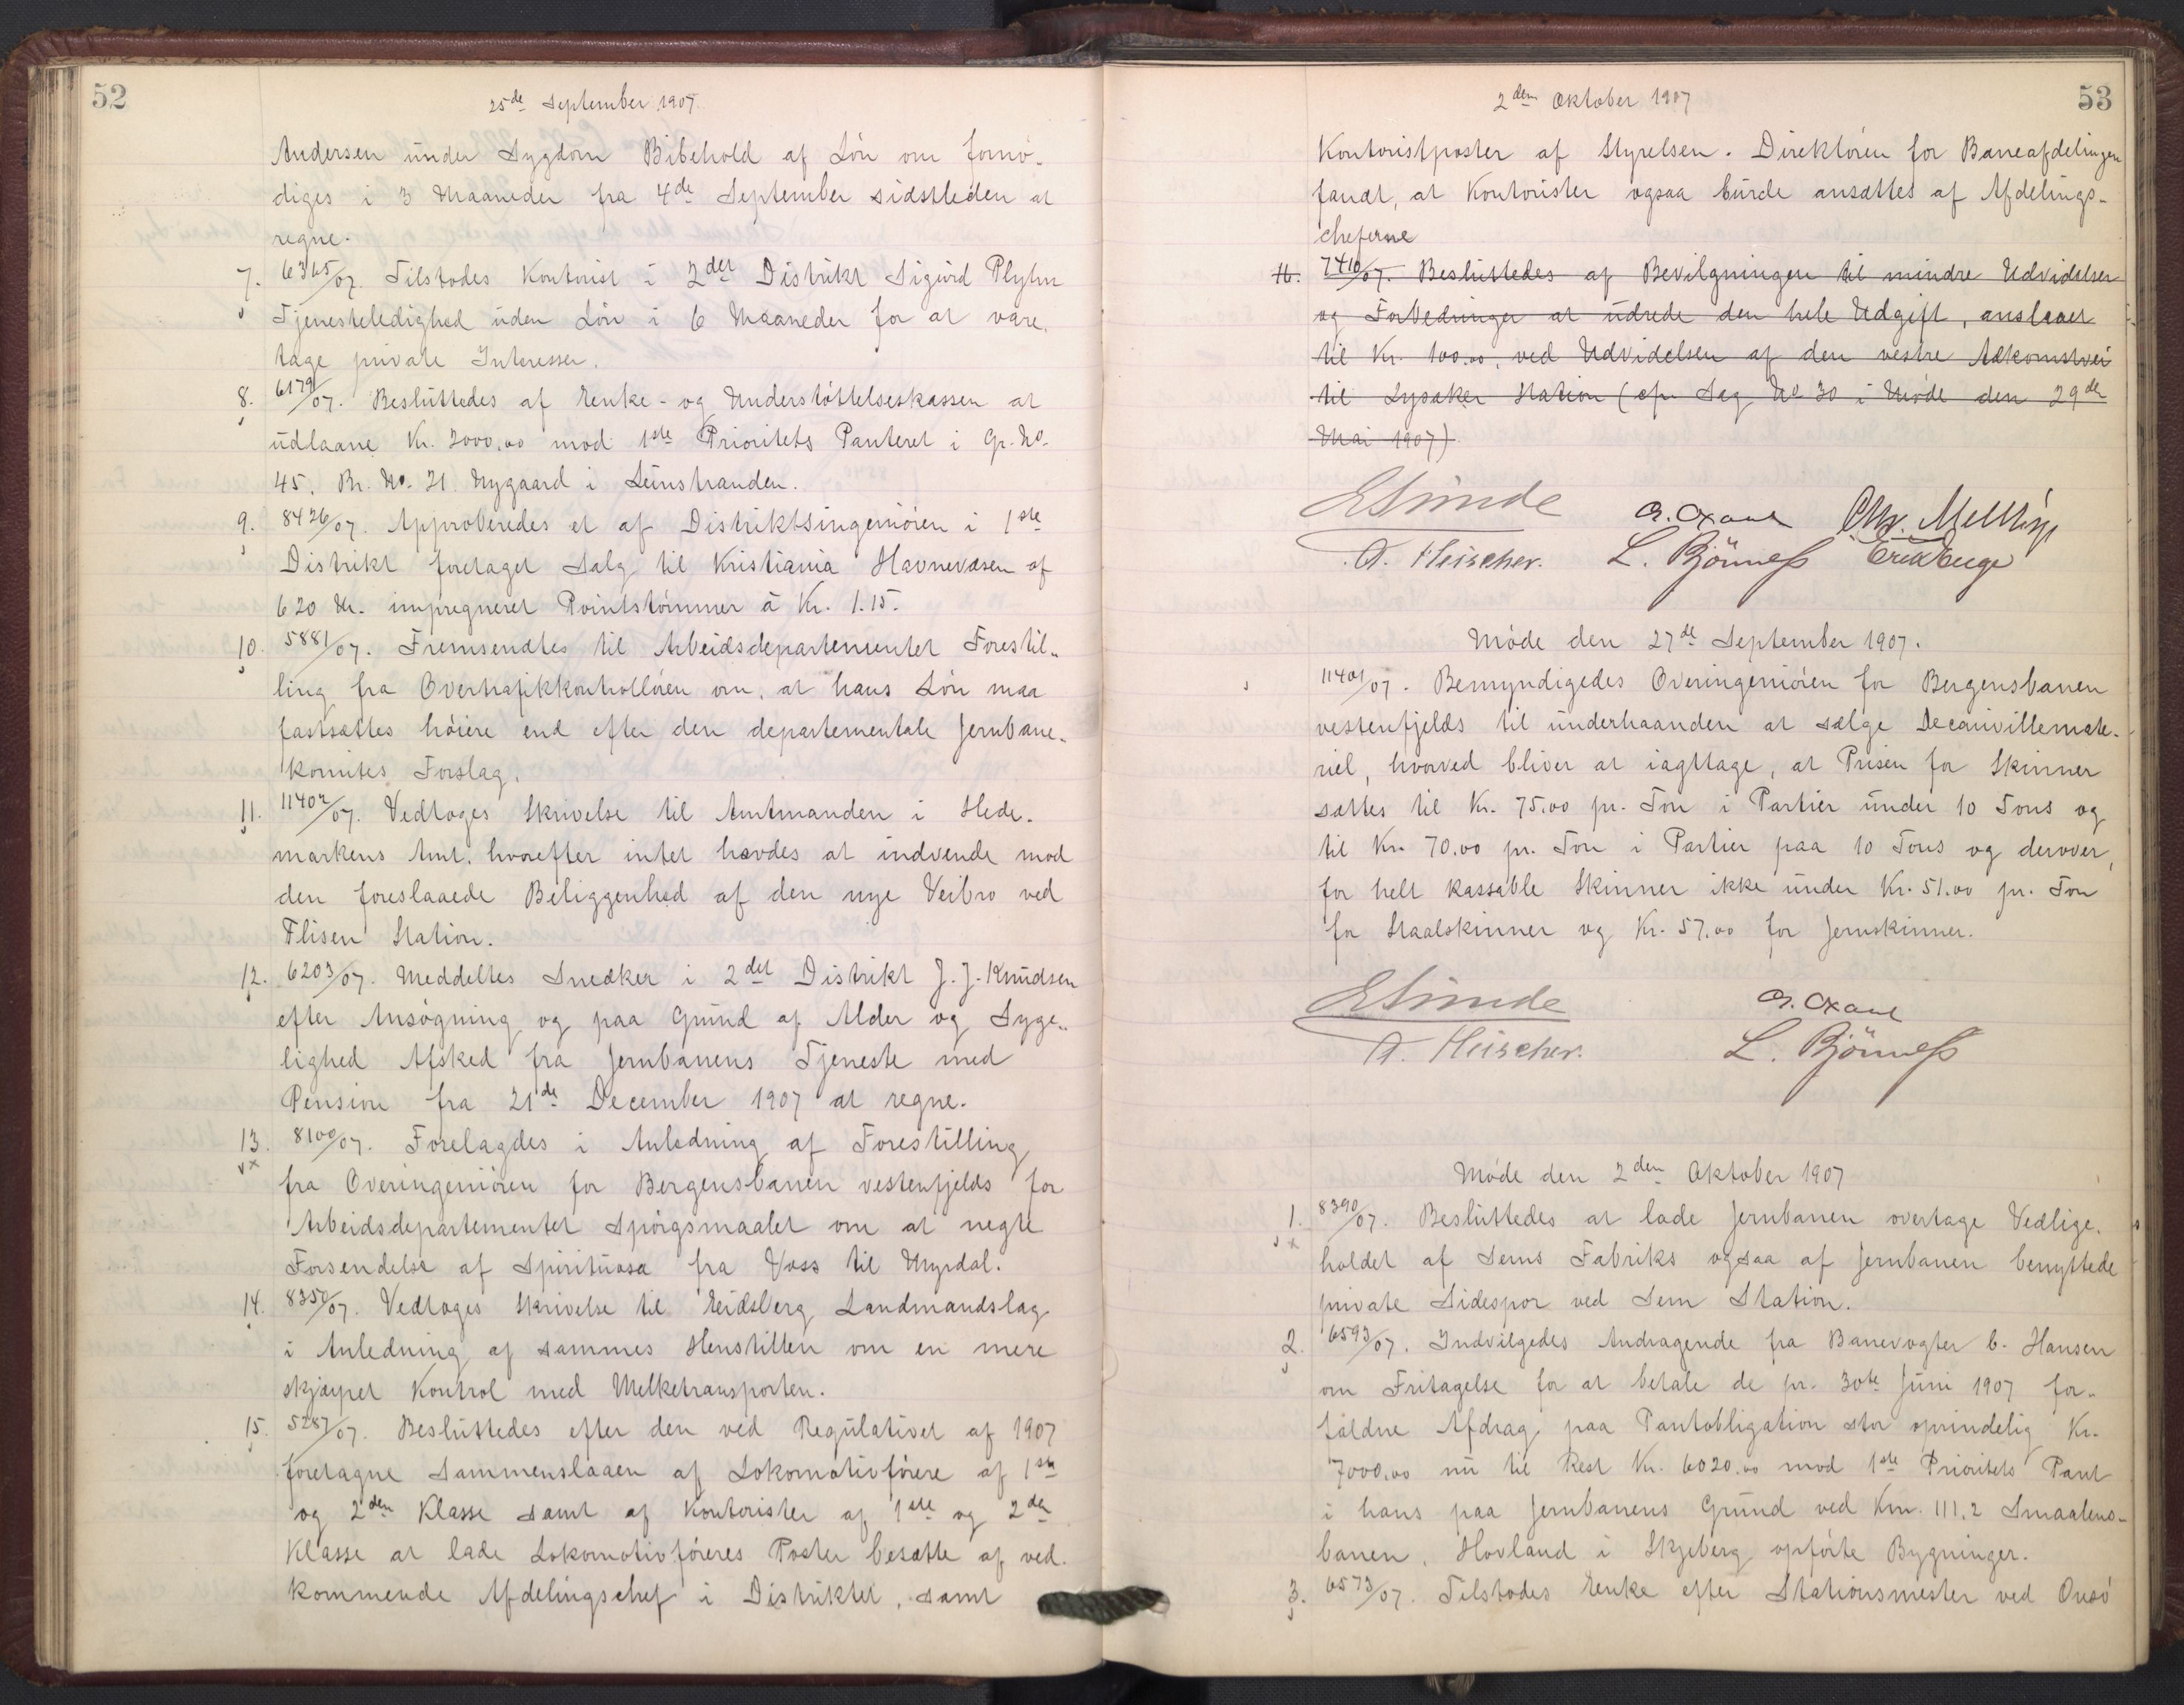 52
25de September 1907.
Andersen under Sygdom Bibehold af Løn om fornø-
diges i 3 Maaneder fra 4de September sidstleden at
regne.
7. 6365/07. Tilstodes Kontorist i 2det Distrikt Sigurd Plyhn
Tjenesteledighed uden Løn i 6 Maaneder for at vare-
tage private Interesser.
8. 6179/07. Besluttedes af Enke- og Understøttelseskassen at
udlaane Kr. 2000,00 mod 1ste Prioritets Panteret i Gr. No.
45. Br. No. 21 Nygaard i Leinstranden.
9. 8426/07. Approberedes et af Distriktsingeniøren i 1ste
Distrikt foretaget Salg til Kristiania Havnevæsen af
620 M. impregneret Pointstømmer à Kr. 1.15.
10. 5881/07. Fremsendtes til Arbeidsdepartementet Forestil-
ling fra Overtrafikkontrolløren om, at hans Løn maa
fastsættes høiere end efter den departementale Jernbane-
komites Forslag.
11. 11402/07. Vedtoges Skrivelse til Amtmanden i Hede-
markens Amt, hvorefter intet havdes at indvende mod
den foreslaaede Beliggenhed af den nye Veibro ved
Flisen Station.
12. 6203/07. Meddeltes Snedker i 2det Distrikt J. J. Knudsen
efter Ansøgning og paa Grund af Alder og Syge-
lighed Afsked fra Jernbanens Tjeneste med
Pension fra 21de December 1907 at regne.
13. 8100/07. Forelagdes i Anledning af Forestilling
fra Overingeniøren for Bergensbanen vestenfjelds for
Arbeidsdepartementet Spørgsmaalet om at negte
Forsendelse af Spirituosa fra Voss til Myrdal.
14. 8350/07. Vedtoges Skrivelse til Eidsberg Landmandslag
i Anledning af sammes Henstillen om en mere
skjærpet Kontrol med Melketransporten.
15. 5287/07. Besluttedes efter den ved Regulativet af 1907
foretagne Sammenslaaen af Lokomotivførere af 1ste
og 2den Klasse samt af Kontorister af 1ste og 2den
Klasse at lade Lokomotivføreres Poster besætte af ved-
kommende Afdelingschef i Distriktet, samt
53
2den Oktober 1907
Kontoristposter af Styrelsen. Direktøren for Baneafdelingen
fandt, at Kontorister ogsaa burde ansættes af Afdelings-
cheferne
16. 7410/07. Besluttedes af Bevilgningen til mindre Udvidelser
og Forbedringer at udrede den hele Udgift, anslaaet
til Kr. 100.00, ved Udvidelsen af den vestre Adkomstvei
til Lysaker Station (cfr. Sag No 30 i Møde den 29de
Mai 1907)
E Sunde
A. Fleischer. L. Bjönness
Møde den 27de September 1907.
11401/07. Bemyndigedes Overingeniøren for Bergensbanen
vestenfjelds til underhaanden at sælge Decauvillemate-
riel, hvorved bliver at iagttage, at Prisen for Skinner
sættes til Kr. 75.00 pr. Ton i Partier under 10 Tons og
til Kr. 70.00 pr. Ton i Partier paa 10 Tons og derover,
for helt kassable Skinner ikke under Kr. 51.00 pr. Ton
for Staalskinner og Kr. 57.00 for Jernskinner.
E Sunde
A. Fleischer. L. Bjönness
Møde den 2den Oktober 1907
1. 8390/07. Besluttedes at lade Jernbanen overtage Vedlige-
holdet af Sems Fabriks ogsaa af Jernbanen benyttede
private Sidespor ved Sem Station.
2. 6593/07. Indvilgedes Andragende fra Banevogter C. Hansen
om Fritagelse for at betale de pr. 30te Juni 1907 for-
faldne Afdrag paa Pantobligation stor oprindelig Kr.
7000.00 nu til Rest Kr. 6020.00 mod 1ste Prioritets Pant
i hans paa Jernbanens Grund ved Km. 111,2 Smaalens-
banen, Hovland i Skjeberg opførte Bygninger.
3. 6573/07. Tilstodes Enke efter Stationsmester ved Onsø